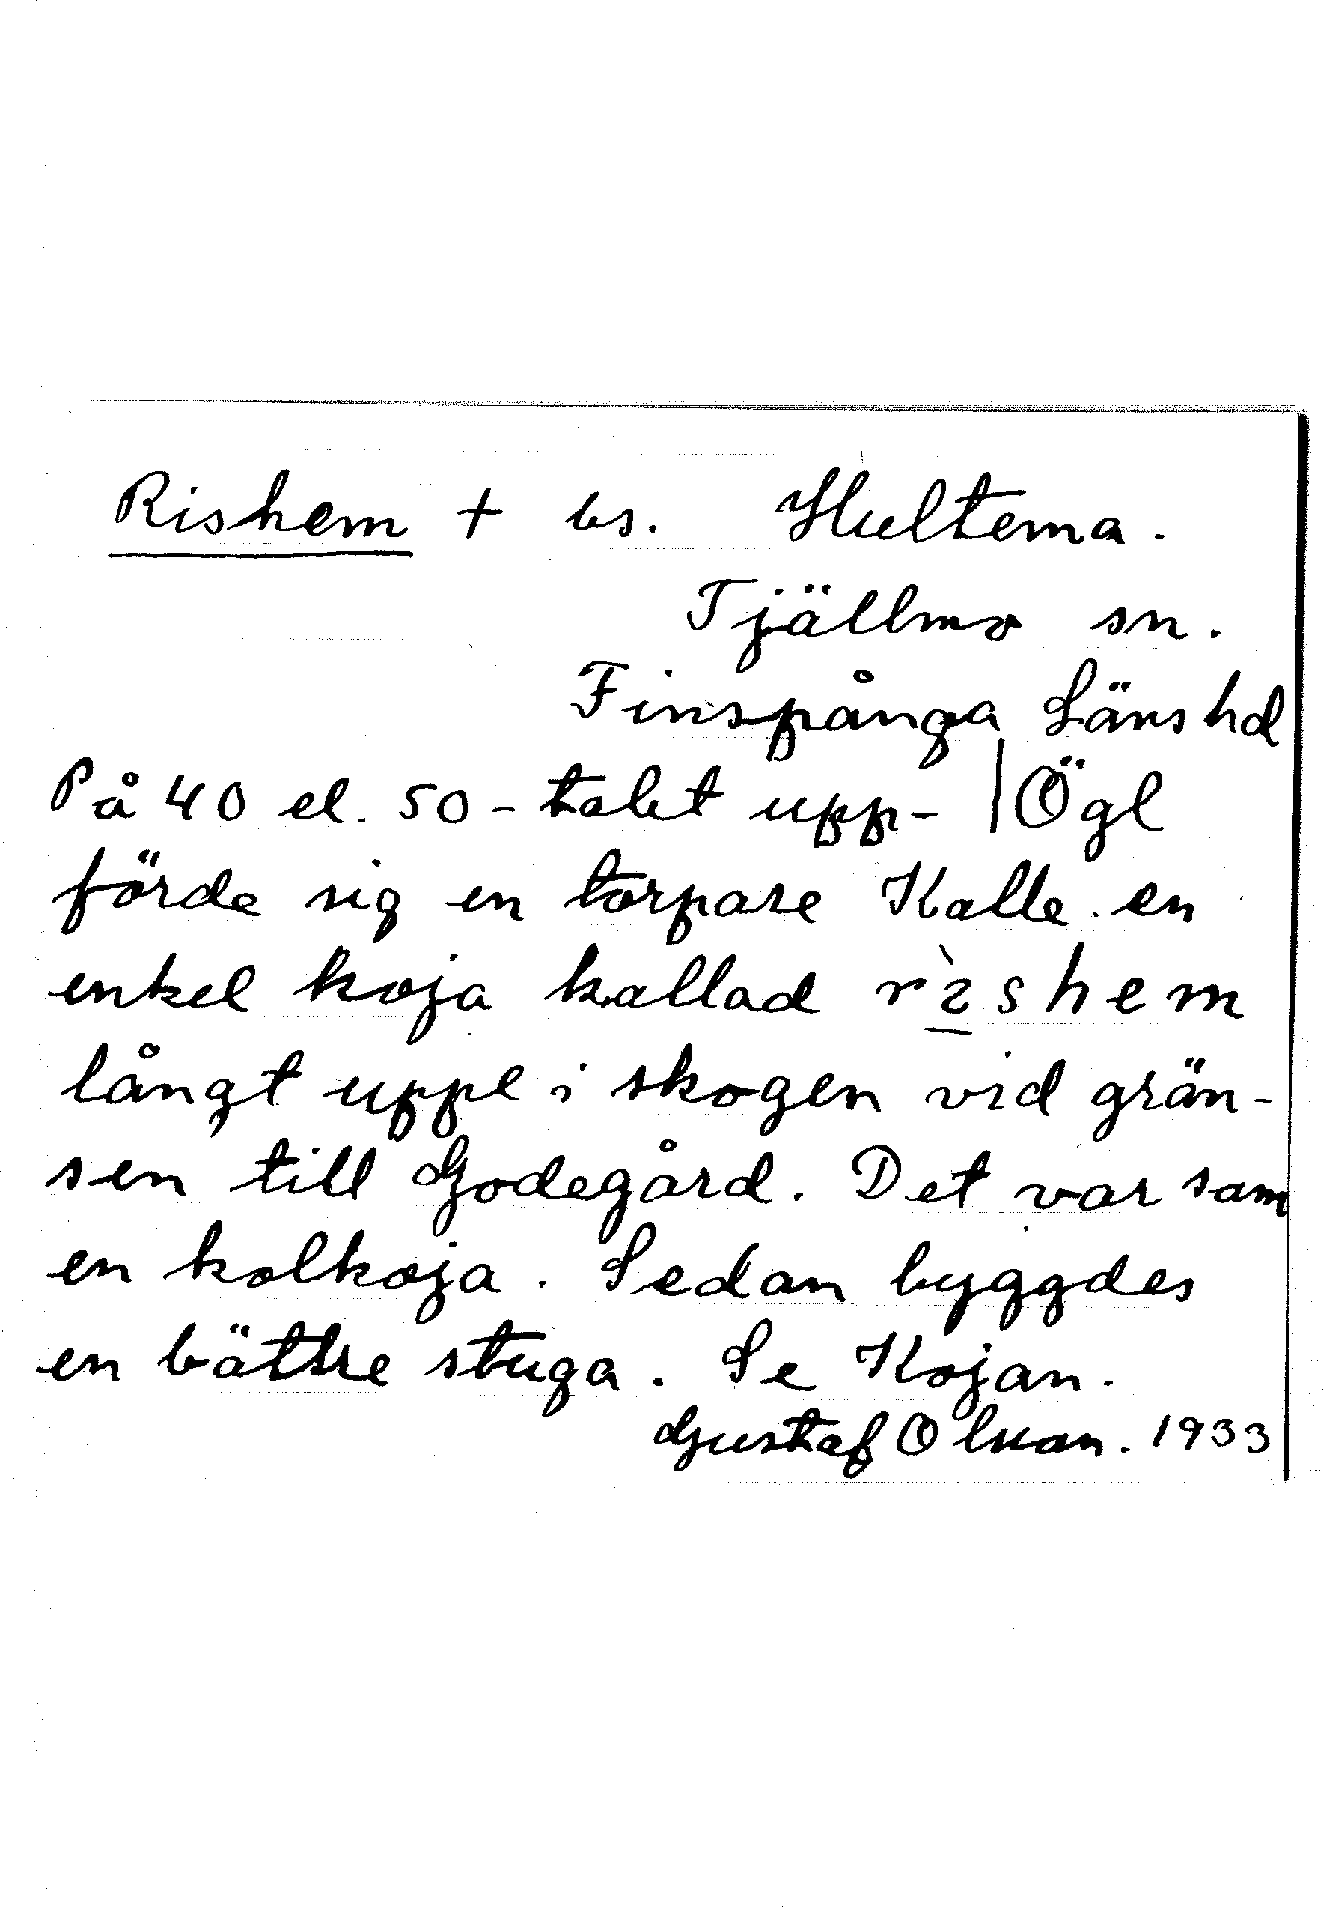 Rishem † bs. Hultema.
Tjällmo sn.
Finspånga Läns hd
På 40 el. 50-talet upp- | Ögl
förde sig en torpare Kalle en
enkel koja kallad rìshem
långt uppe i skogen vid grän-
sen till Godegård. Det var som
en kolkoja. Sedan byggdes
en bättre stuga. Se Kojan.
Gustaf 1933